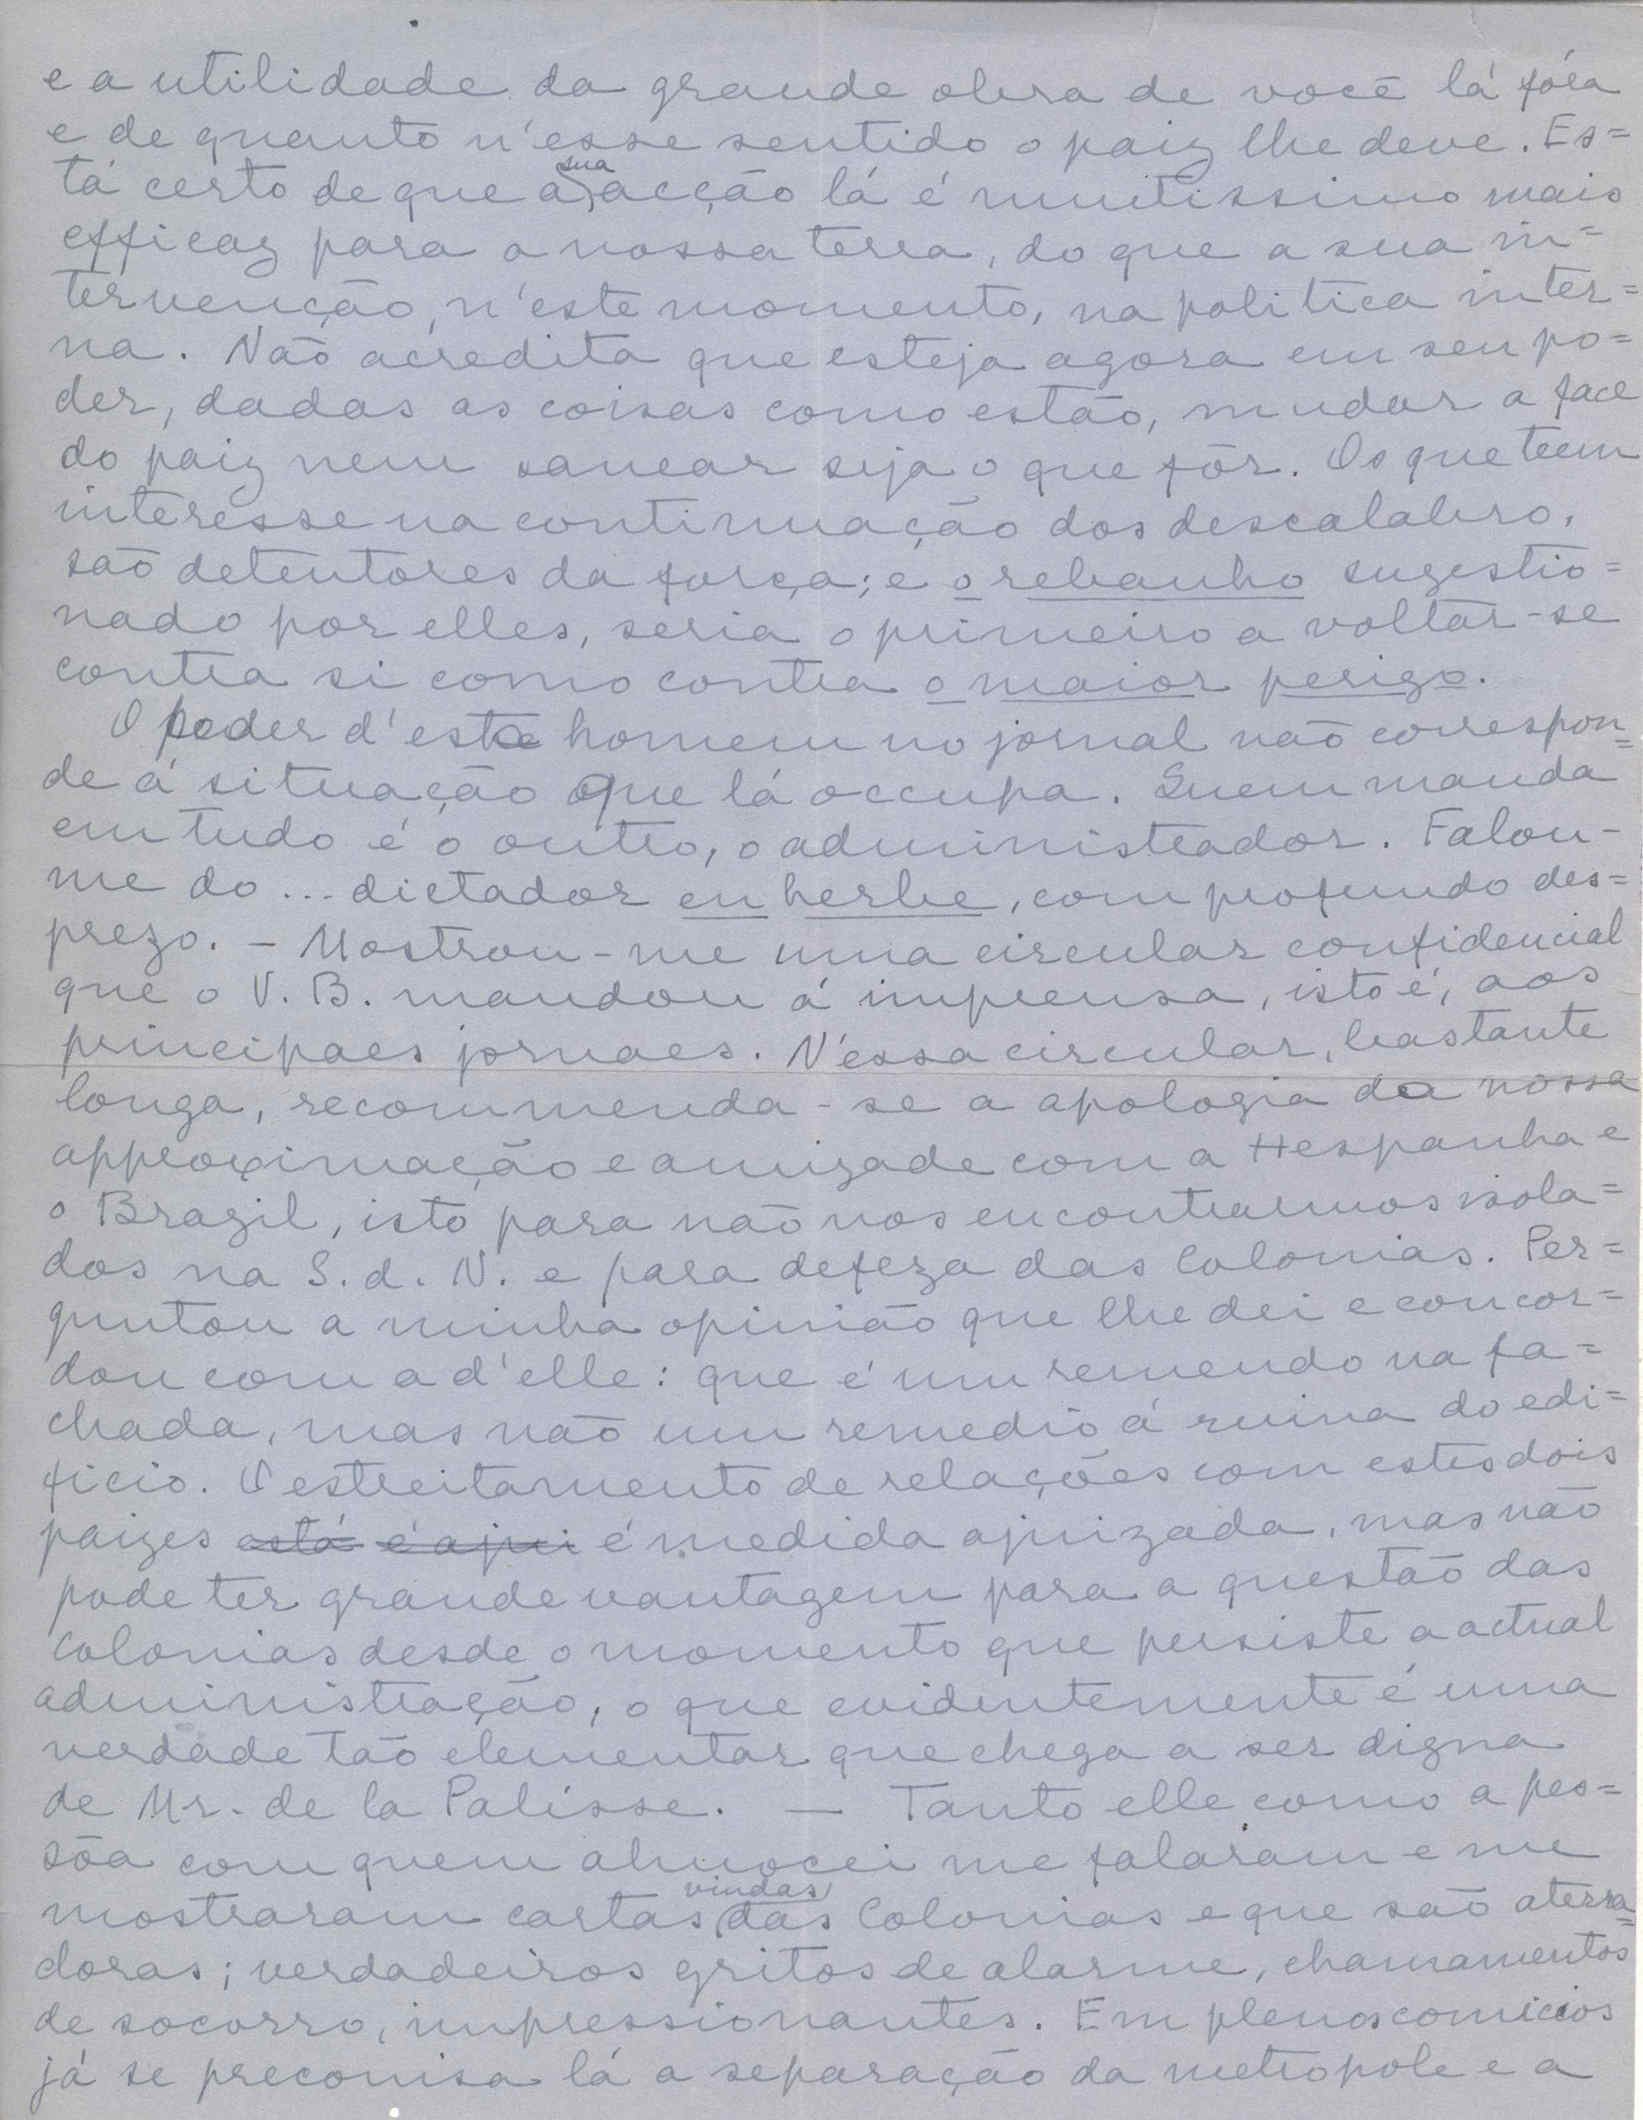 e a utilidade da grande obra de você lá fóra
e de quanto n'esse sentido o paiz lhe deve. Es=
tá certo de que a sua acção lá é muitissimo mais
efficaz para a nossa terra, do que a sua in=
tervenção, n'este momento, na politica inter=
na. Não acredita que esteja agora em seu po=
der, dadas as coisas como estão, mudar a face
do paiz nem sanear seja o que fôr. Os que teem
interesse na continuação dos descalabro,
são detentores da força; e o rebanho sugestio=
nado por elles, seria o primeiro a voltar-se
contra si como contra o maior perigo.
O poder d'este homem no jornal não correspon=
de á situação que lá occupa. Quem manda
em tudo é o outro, o administrador. Falou-
me do ... dictador en herbe, com profundo des=
prezo. - Mostrou-me uma circular confidencial
que o V. B. mandou á imprensa, isto é, aos
principaes jornaes. N'essa circular, bastante
longa, recommenda-se a apologia da nossa
approximação e amizade com a Hespanha e
o Brazil, isto para não nos encontrarmos isola=
dos na S. d. N. e para defeza das Colonias. Per=
guntou a minha opinião que lhe dei e concor=
dou com a d'elle: que é um remendo na fa=
chada, mas não um remedio á ruina do edi=
ficio. O estreitamento de relações com estes dois
paizes está é ajui é medida ajuizada, mas não
pode ter grande vantagem para a questão das
Colonias desde o momento que persiste a actual
administração, o que evidentemente é uma
verdade tão elementar que chega a ser digna
de Mr. de la Palisse. — Tanto elle como a pes=
sôa com quem almocei me falaram e me
mostraram cartas vindas das Colonias e que são aterra=
doras; verdadeiros gritos de alarme, chamamentos
de socorro, impressionantes. Em plenos comicios
já se preconisa lá a separação da metropole e a